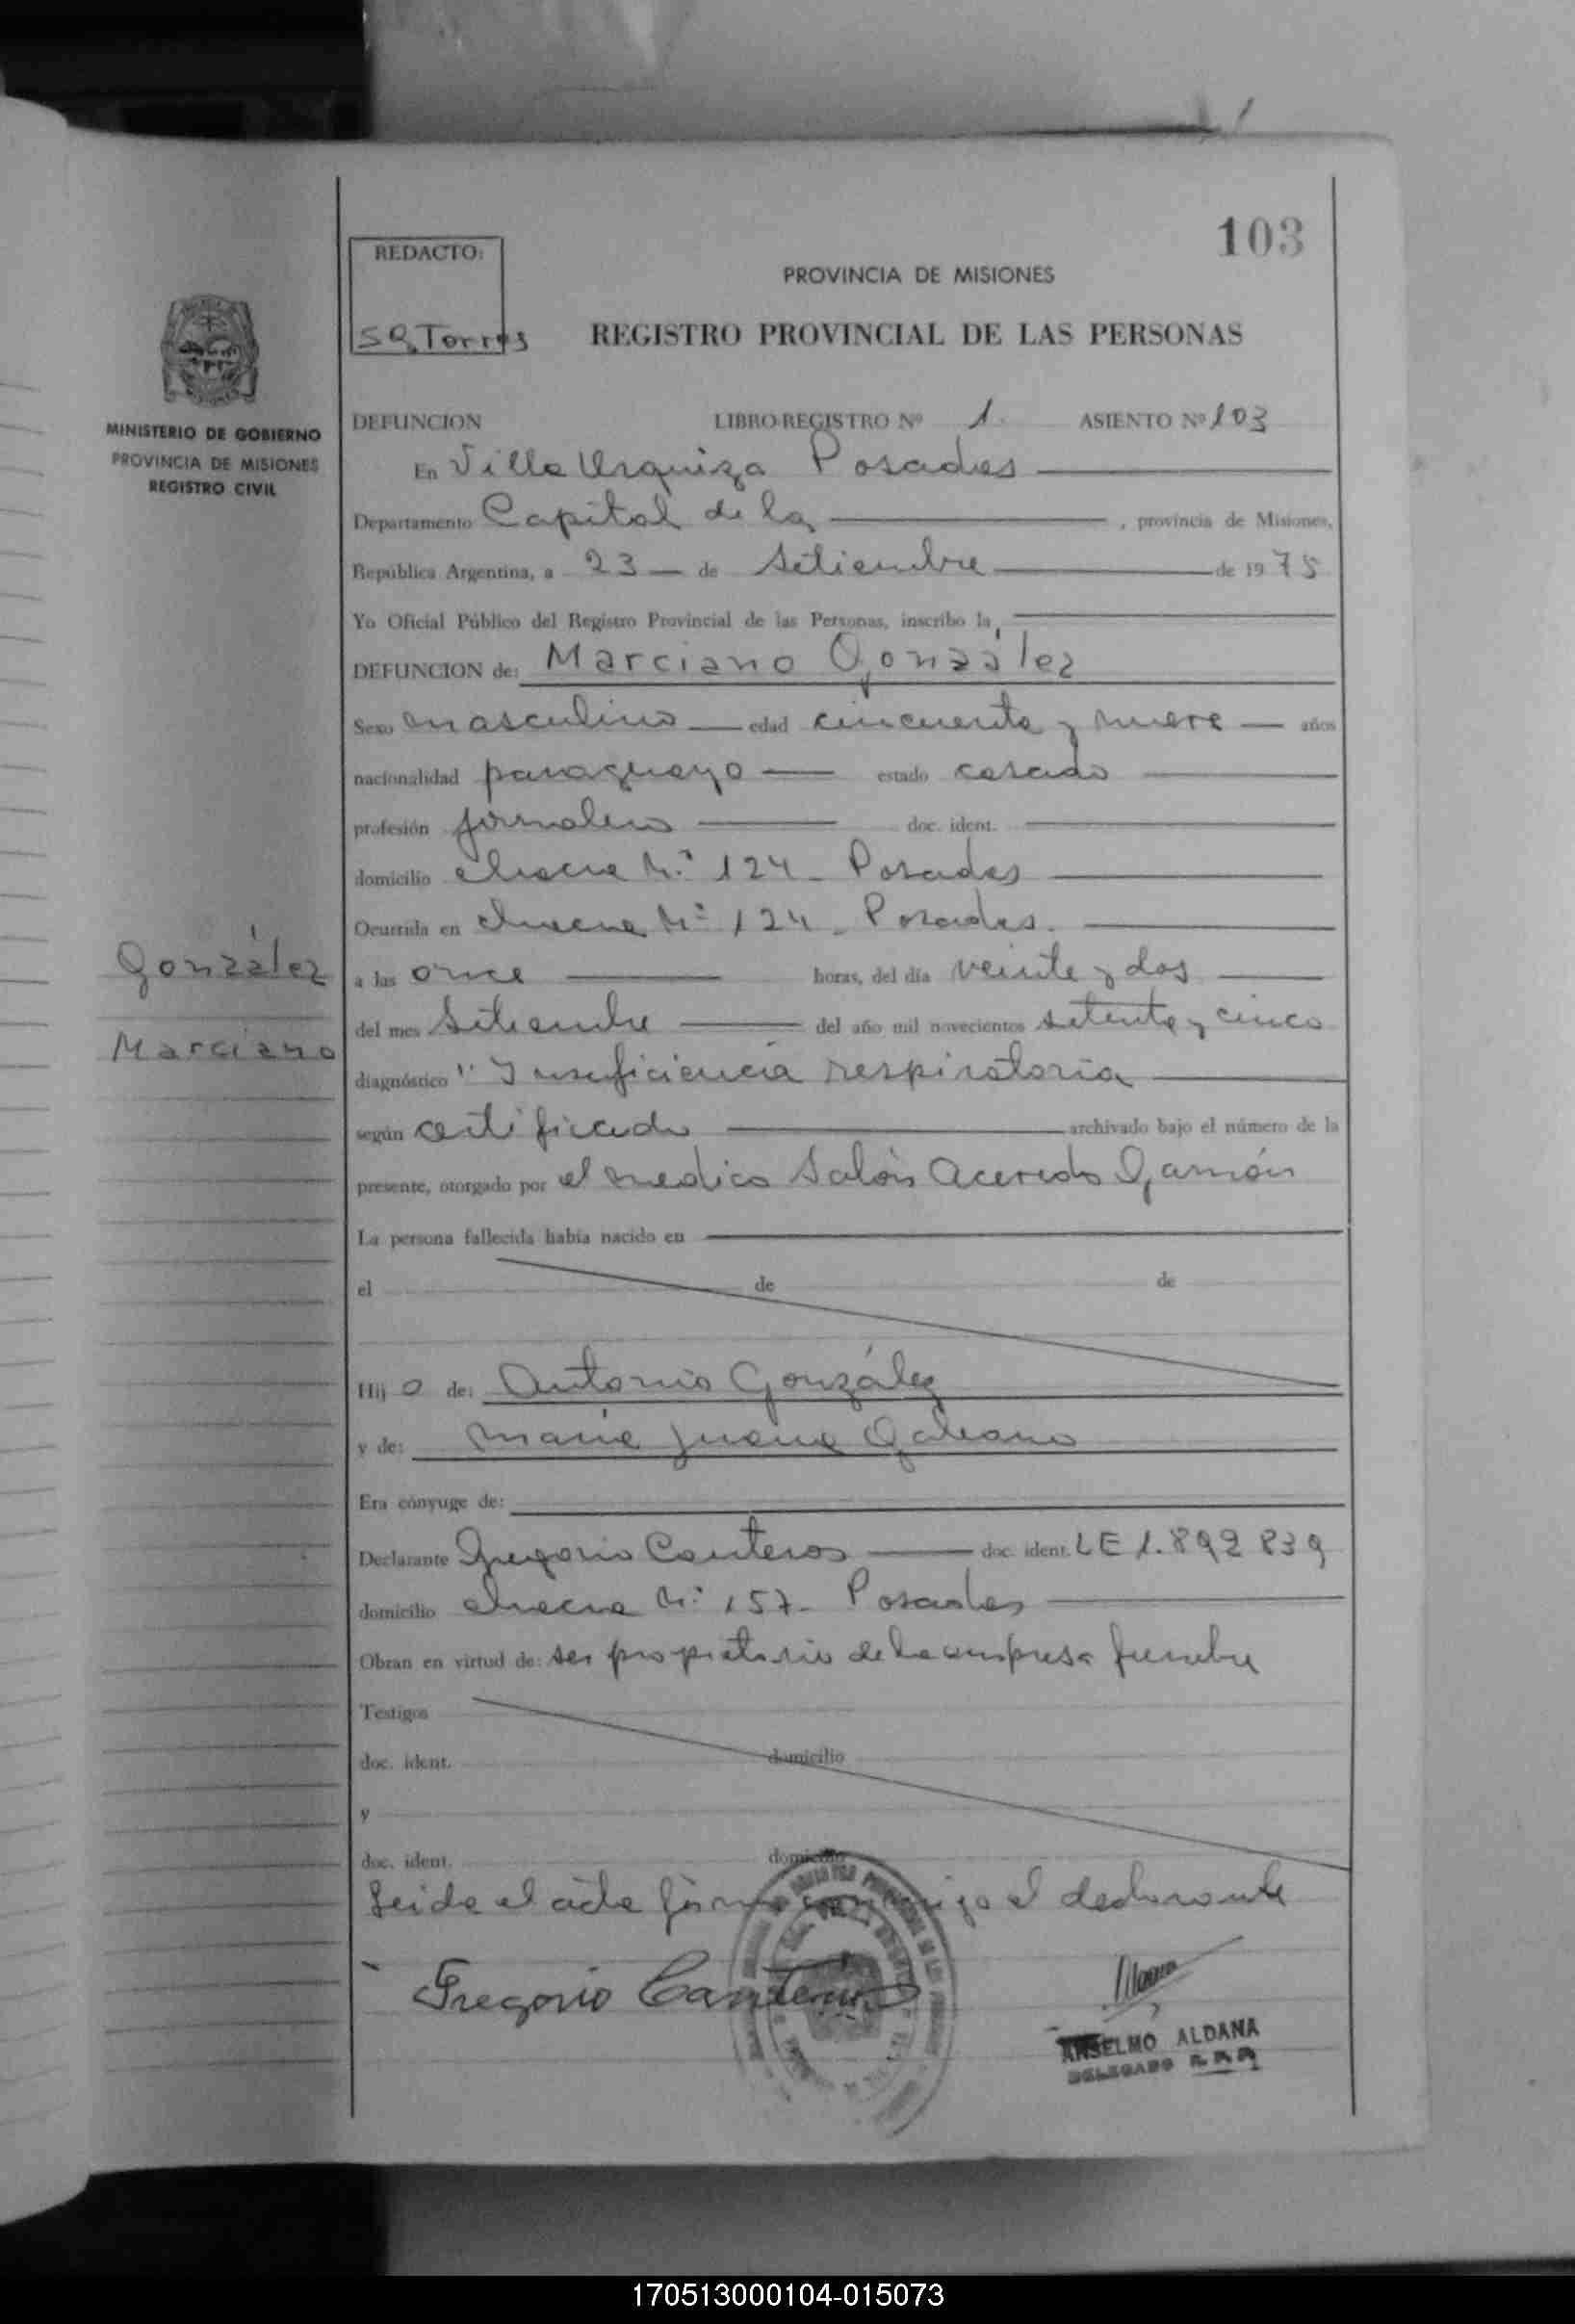 103
REDACTO:
S G. Torres
PROVINCIA DE MISIONES
REGISTRO PROVINCIAL DE LAS PERSONAS
MINISTERIO DE GOBIERNO
PROVINCIA DE MISIONES
REGISTRO CIVIL
DEFUNCION LIBRO-REGISTRO Nº 1. ASIENTO Nº 103
En Villa Urquiza Posadas
Departamento Capital de la, provincia de Misiones,
República Argentina, a 23 de Setiembre de 1975
Yo Oficial Público del Registro Provincial de las Personas, inscribo la
DEFUNCION de: Marciano González
Sexo masculino edad cincuenta y nueve años
nacionalidad paraguayo estado casado
profesión jornalero doc. ident.
domicilio chacra Nº 124 - Posadas
Ocurrida en chacra Nº 124 - Posadas.
González
Marciano
a las once horas, del día veinte y dos
del mes Setiembre del año mil novecientos setenta y cinco
diagnóstico "Insuficiencia respiratoria
según certificado archivado bajo el número de la
presente, otorgado por el medico Acevedo
La persona fallecida había nacido en
el de de
Hijo de: Antonio González
y de: María Juana Galeano
Era cónyuge de:
Declarante Gregorio Canteros doc. ident. LE 1.892 839
domicilio chacra Nº 157 - Posadas
Obran en virtud de: ser propietario de la empresa funebre
Testigos
doc. ident. domicilio
y
doc. ident. domicilio
Leida el acta firma conmigo el declarante
Gregorio Canteros
ANSELMO ALDANA
DELEGADO
170513000104-015073